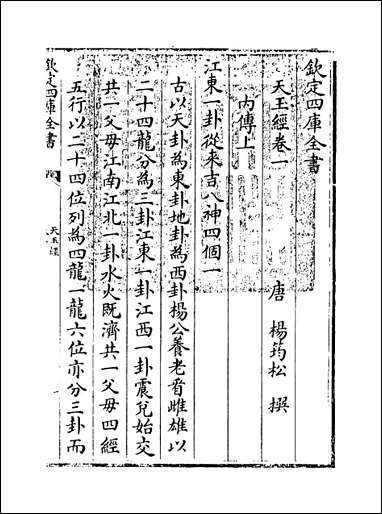 欽定四庫全書
天玉經卷一
唐 楊筠松 撰
内傳上
江東一卦從来吉八神四個一
古以天卦為東卦地卦為西卦楊公養老看雌雄以
二十四龍分為三卦江東一卦江西一卦震兌始交
共一父母江南江北一卦水火既濟共一父母四經
五行以二十四位列為四龍一龍六位亦分三卦而
欽定四庫全書
天玉經